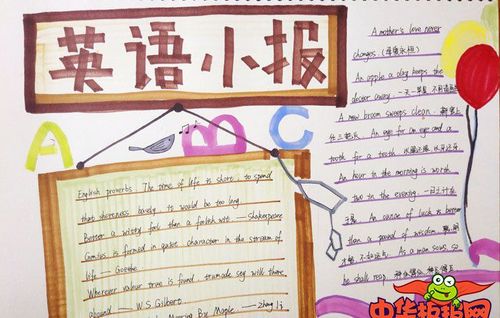 英语小报
A B C
English proverbs The time of life is short; to spend
that shortness basely, it would be too long
Better a witty fool than a foolish wit — Shakespeare
Genius is formed in quiet, character in the stream of
life — Goethe
Wherever valour true is found, true modesty will there
abound — W.S. Gilbert
A mother's love never
changes. (母爱永恒)
An apple a day keeps the
doctor away. 一天一苹果 不用请医生
A new broom sweeps clean. 新官上
任三把火 An eye for an eye and a
tooth for a tooth 以眼还眼 以牙还牙
An hour in the morning is worth
two in the evening. 一日之计在
于晨 An ounce of luck is better
than a pound of wisdom
As a man sows, so
he shall reap.
中华拼报网